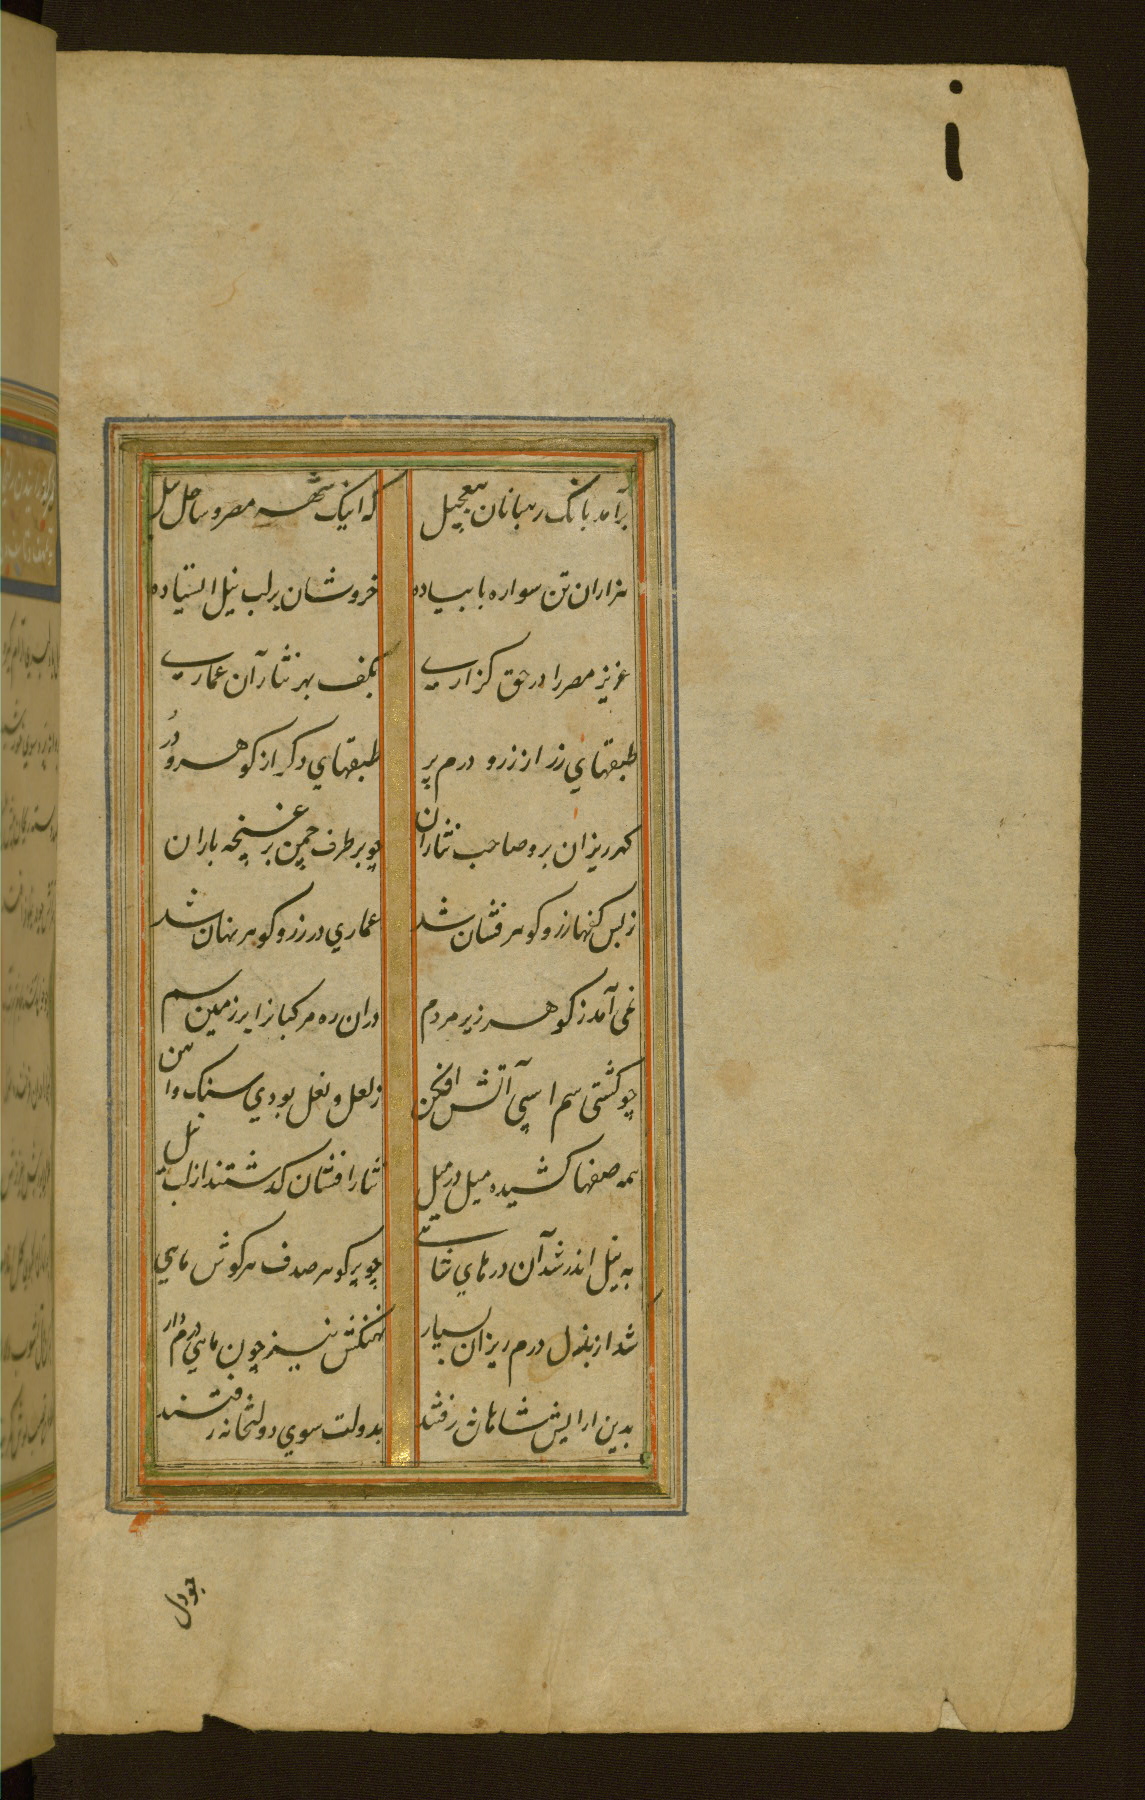 برآمد بانک رهبانان بتعجیل که اینک شهر مصر و ساحل نیل
هزاران تن سواره با پیاده خروشان بر لب نیل ایستاده
عزیز مصر را در حق کزاری بکف بهر نثار آن عماری
طبقهای زر از زر و درم پر طبقهای دکر از کوهر و در
کهر ریزان برو صاحب نثاران چو بر طرف چمن بر غنچه باران
ز بس کفها زر و کوهر فشان شد عماری در زر و کوهر نهان شد
نمی آمد ز کوهر زیر مردم دران ره مرکبانرا بر زمین سم
چو کشتی سم اسپی آتش افکن ز لعل و نعل بودی سنک و آهن
همه صفها کشیده میل در میل نثار افشان کذشتند از لب نیل
به نیل اندر شد آن درهای شاهی چو پر کوهر صدف هر کوش ماهی
شد از بذل درم ریزان بسیار نهنکش نیز چون ماهی درم دار
بدین آرایش شاهانه رفتند بدولت سوی دولتخانه رفتند
چو دل